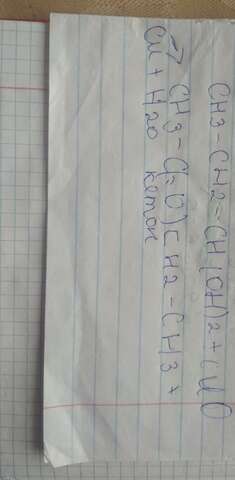 CH3-CH2-CH(OH)2+CUO
→ CH3-C(=O)CH2-CH3+
CU+H2O кетон